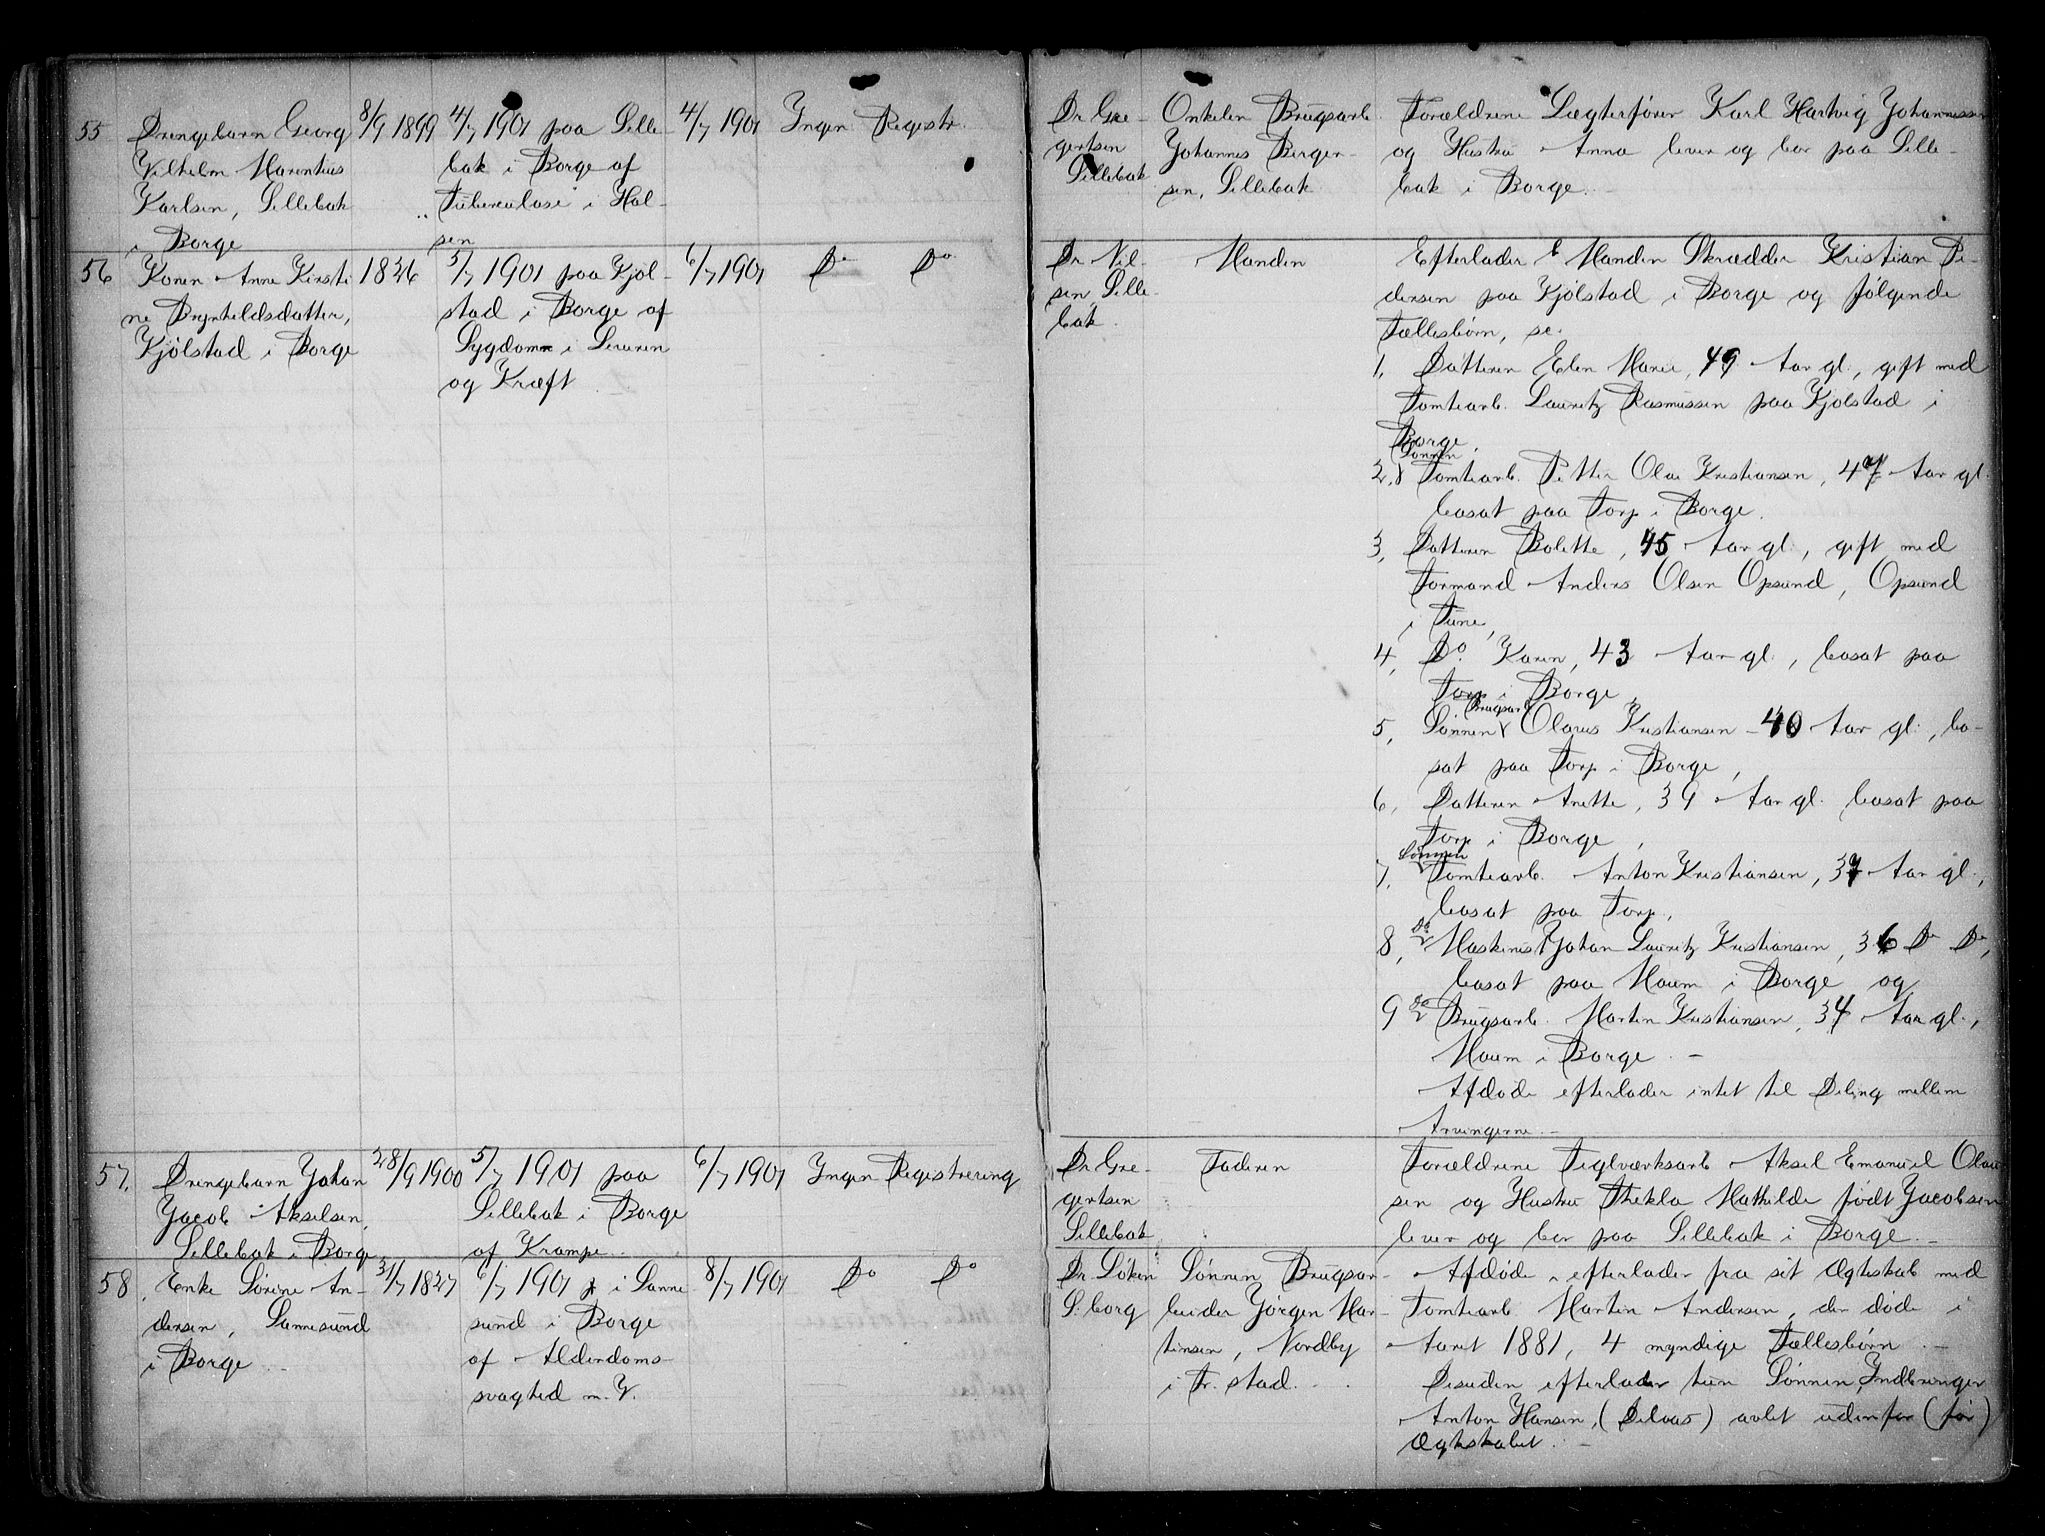 55
Drengebarn Georg
Vilhelm Marentius
Karlsen, Sellebak
i Borge
8/9 1899
4/7 1901 paa Selle-
bak i Borge af
Tuberculose i Hal-
sen
4/7 1901
Ingen Registr.
Dr. Gre-
gertsen
Sellebak
Onkelen Brugsarb.
Johannes Berger-
sen, Sellebak
Forældrene Lægterfører Karl Hartvig Johannessen
og Hustru Anna lever og bor paa Selle-
bak i Borge. -
56
Konen Anne Kirsti-
ne Brynhildsdatter,
Kjølstad i Borge
1826
5/7 1901 paa Kjøl-
stad i Borge af
Sygdom i Leveren
og Kræft.
6/7 1901
Do Do
Dr. Nil-
sen Selle-
bak.
Manden
Efterlader Manden Skrædder Kristian Pe-
dersen paa Kjølstad i Borge og følgende
Fællesbørn, se.
1, Datteren Elen Marie, 49 Aar gl., gift med
Tomtearb. Lauritz Rasmussen paa Kjølstad i
Borge.
Sønnen
2, Tomtearb. Petter Olai Kristiansen, 47 Aar gl.
bosat paa Torp i Borge.
3, Datteren Bolette, 45 Aar gl., gift med
Formand Anders Olsen Opsund, Opsund
i Tune,
4, Do Karen, 43 Aar gl., bosat paa
Torp i Borge,
Brugsarb.
5, Sønnen Olaus Kristiansen - 40 Aar gl., bo-
sat paa Torp i Borge,
6, Datteren Anette, 39 Aar gl. bosat paa
Torp i Borge,
Sønnen
7, Tomtearb. Anton Kristiansen, 37 Aar gl.,
bosat paa Torp,
8, Do Maskinist Johan Lauritz Kristiansen, 36 Do Do,
bosat paa Moum i Borge og
9 Do Brugsarb. Martin Kristiansen, 34 Aar gl.,
Moum i Borge. -
Afdøde efterlader intet til Deling mellem
Arvingerne. -
57.
Drengebarn Johan
Jacob Akselsen,
Sellebak i Borge
28/9 1900
5/7 1901 paa
Sellebak i Borge
af Krampe.
6/7 1901
Ingen Registrering
Dr. Gre-
gertsen
Sellebak
Faderen
Forældrene Teglværksarb Aksel Emanuel Olau-
sen og Hustru Thekla Mathilde født Jacobsen
lever og bor paa Sellebak i Borge. -
58.
Enke Sørine An-
dersen, Sannesund
i Borge
31/7 1827
6/7 1901 i Sanne
sund i Borge
af Alderdoms-
svaghed m. V.
8/7 1901
Do Do
Dr. Løken
S. borg
Sønnen Brugsar-
beider Jørgen Mar-
tinsen, Nordby
i Fr. stad.
Afdøde efterlader fra sit Ægteskab med
Tomtearb. Martin Andersen, der døde i
Aaret 1881, 4 myndige Fællesbørn. -
Desuden efterlader hun Sønnen, Indbringer
Anton Hansen, (Selvas) avlet udenfor (før)
Ægteskabet. -